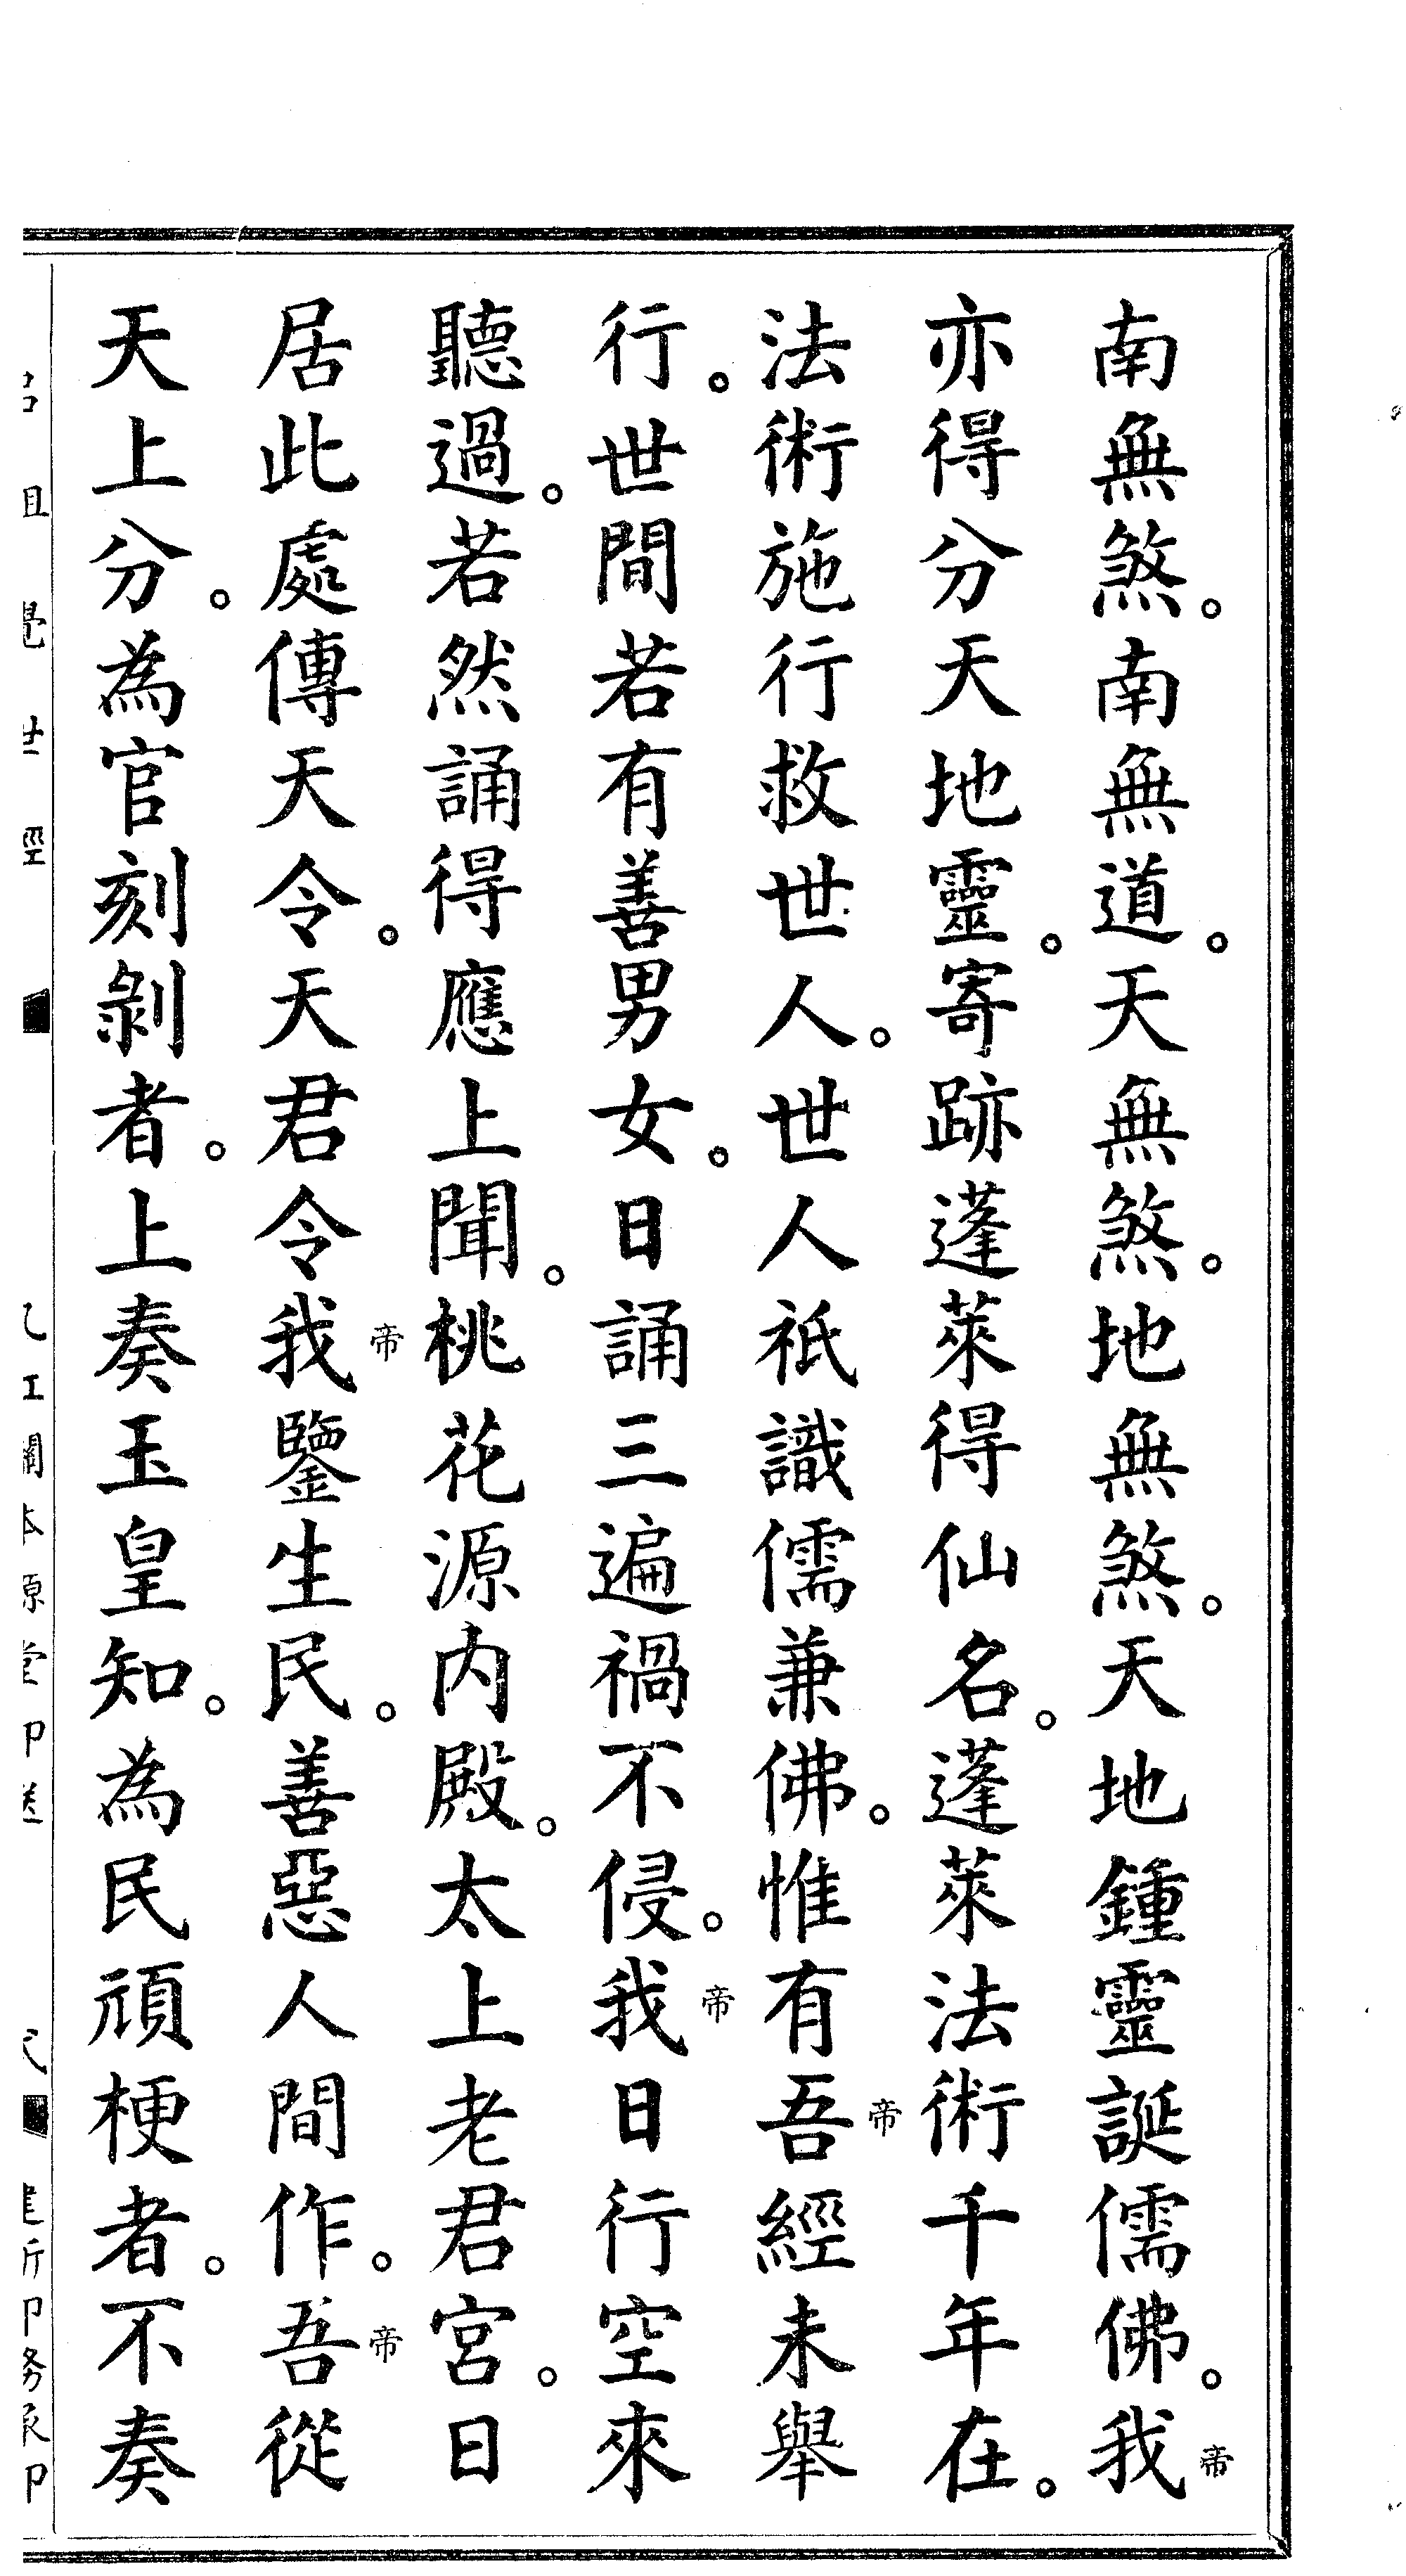 南無煞。南無道。天無煞。地無煞。天地鍾靈誕儒佛。我帝
亦得分天地靈。寄跡蓬萊得仙名。蓬萊法術千年在。
法術施行救世人。世人祇識儒兼佛。惟有吾帝經未舉
行。世間若有善男女。日誦三遍禍不侵。我帝日行空來
聽過。若然誦得應上聞。桃花源內殿。太上老君宮。日
居此處傳天令。天君令我帝鑒生民。善惡人間作。吾帝從
天上分。為官刻剝者。上奏玉皇知。為民頑梗者。不奏